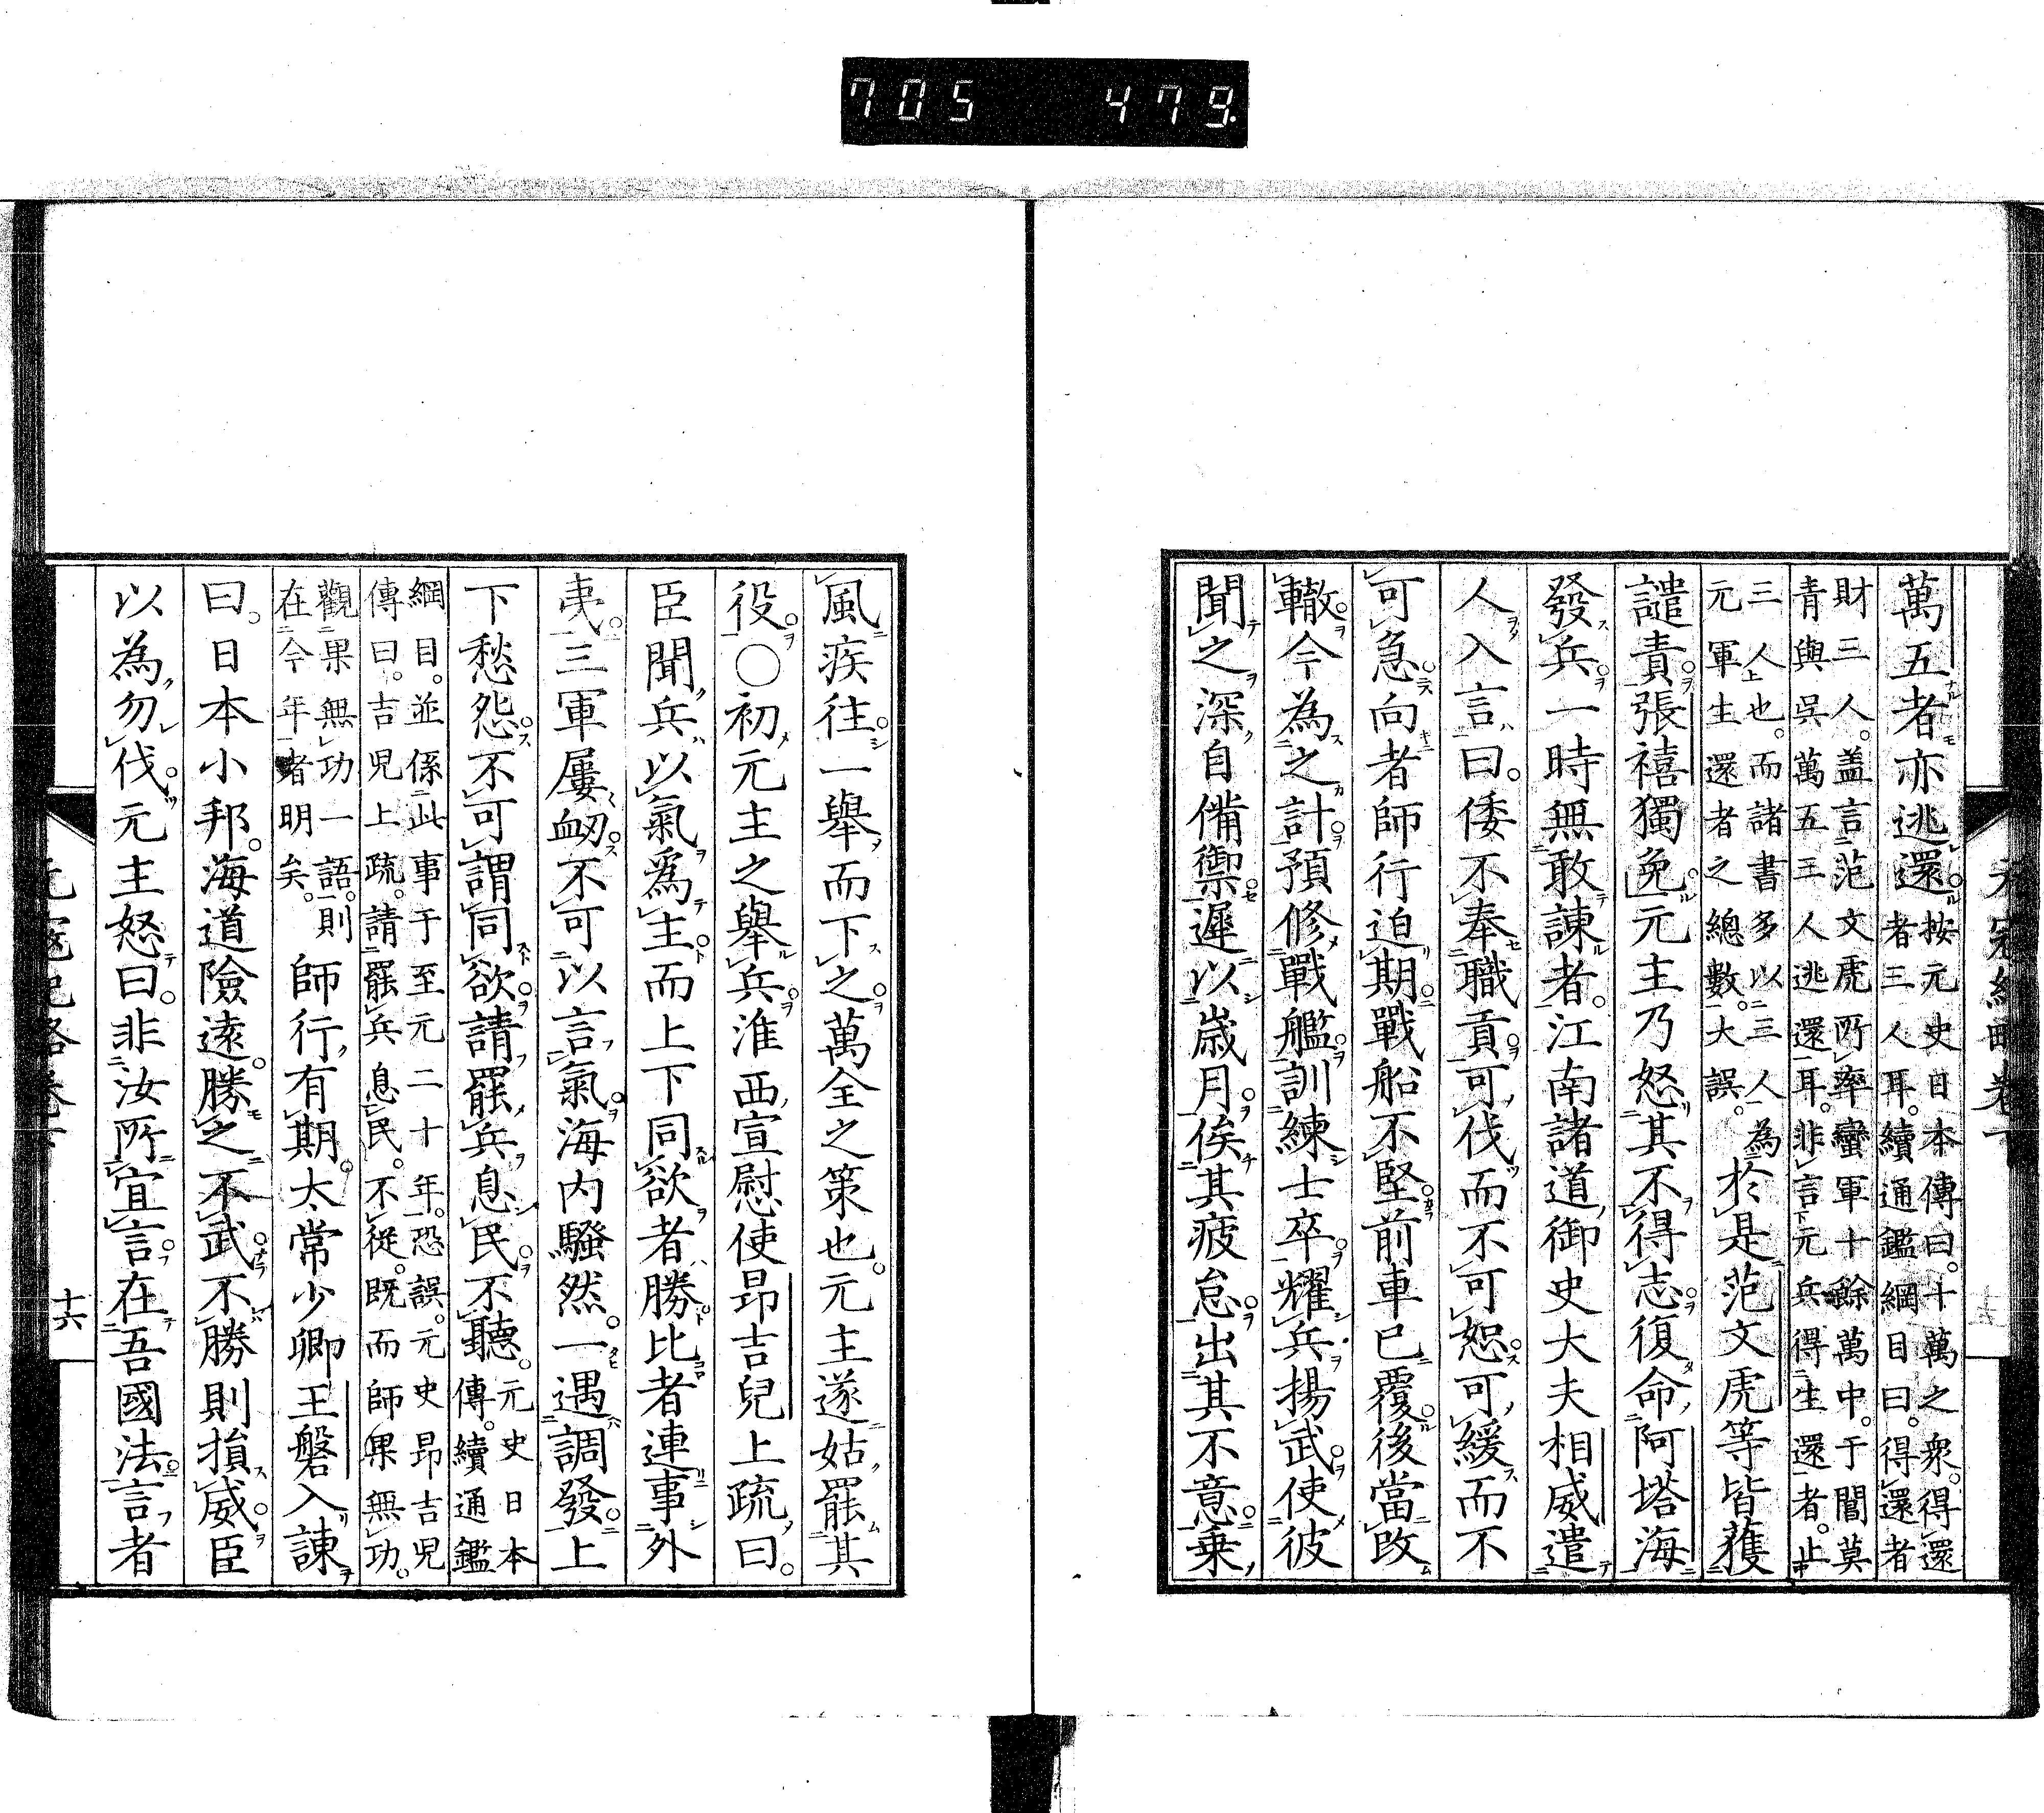 705 479
萬五者亦逃還。按元史日本傳曰。十萬之衆。得還
者三人耳。續通鑑綱目曰。得還者
財三人。蓋言范文虎所率蠻軍十餘萬中。于閶莫
青與呉萬五三人逃還耳。非言元兵得生還者。止
三人也。而諸書多以三人爲
元軍生還者之總數。大誤。於是范文虎等皆獲
譴責。張禧獨免。元主乃怒其不得志。復命阿塔海
發兵。一時無敢諫者。江南諸道御史大夫相威遣
人入言曰。倭不奉職貢。可伐而不可恕。可緩而不
可急。向者師行迫期。戰船不堅。前車已覆。後當改
轍。今為之計。預修戰艦。訓練士卒。耀兵揚武。使彼
聞之。深自備禦。遲以歳月。俟其疲怠。出其不意。乗
風疾往。一舉而下之。萬全之策也。元主遂姑罷其
役。〇初元主之舉兵。淮西宣慰使昂吉兒上疏曰。
臣聞兵以氣爲主。而上下同欲者勝。比者連事外
夷。三軍屢衂。不可以言氣。海内騷然。一遇調發。上
下愁怨。不可謂同欲。請罷兵息民。不聽。元史日本
傳。續通鑑
綱目。並係此事于至元二十年。恐誤。元史昂吉兒
傳曰。吉兒上疏。請罷兵息民。不從。既而師果無功。
觀果無功一語。則
在今年者明矣。師行有期。太常少卿王磐入諫
曰。日本小邦。海道險遠。勝之不武。不勝則損威。臣
以為勿伐。元主怒曰。非汝所宜言。在吾國法。言者
元寇紀略卷下
十六